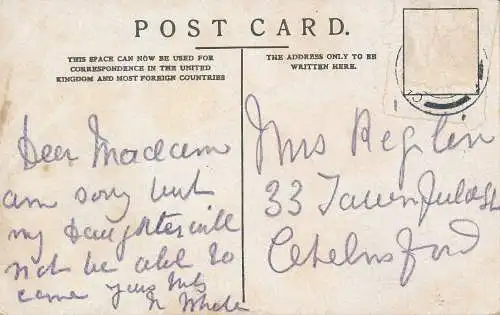 POST CARD.
THIS SPACE CAN NOW BE USED FOR
CORRESPONDENCE IN THE UNITED
KINGDOM AND MOST FOREIGN COUNTRIES
THE ADDRESS ONLY TO BE
WRITTEN HERE.
Dear Madam
am sorry but
my Daughter will
not be able to
come yours
Mrs
33
Chelmsford